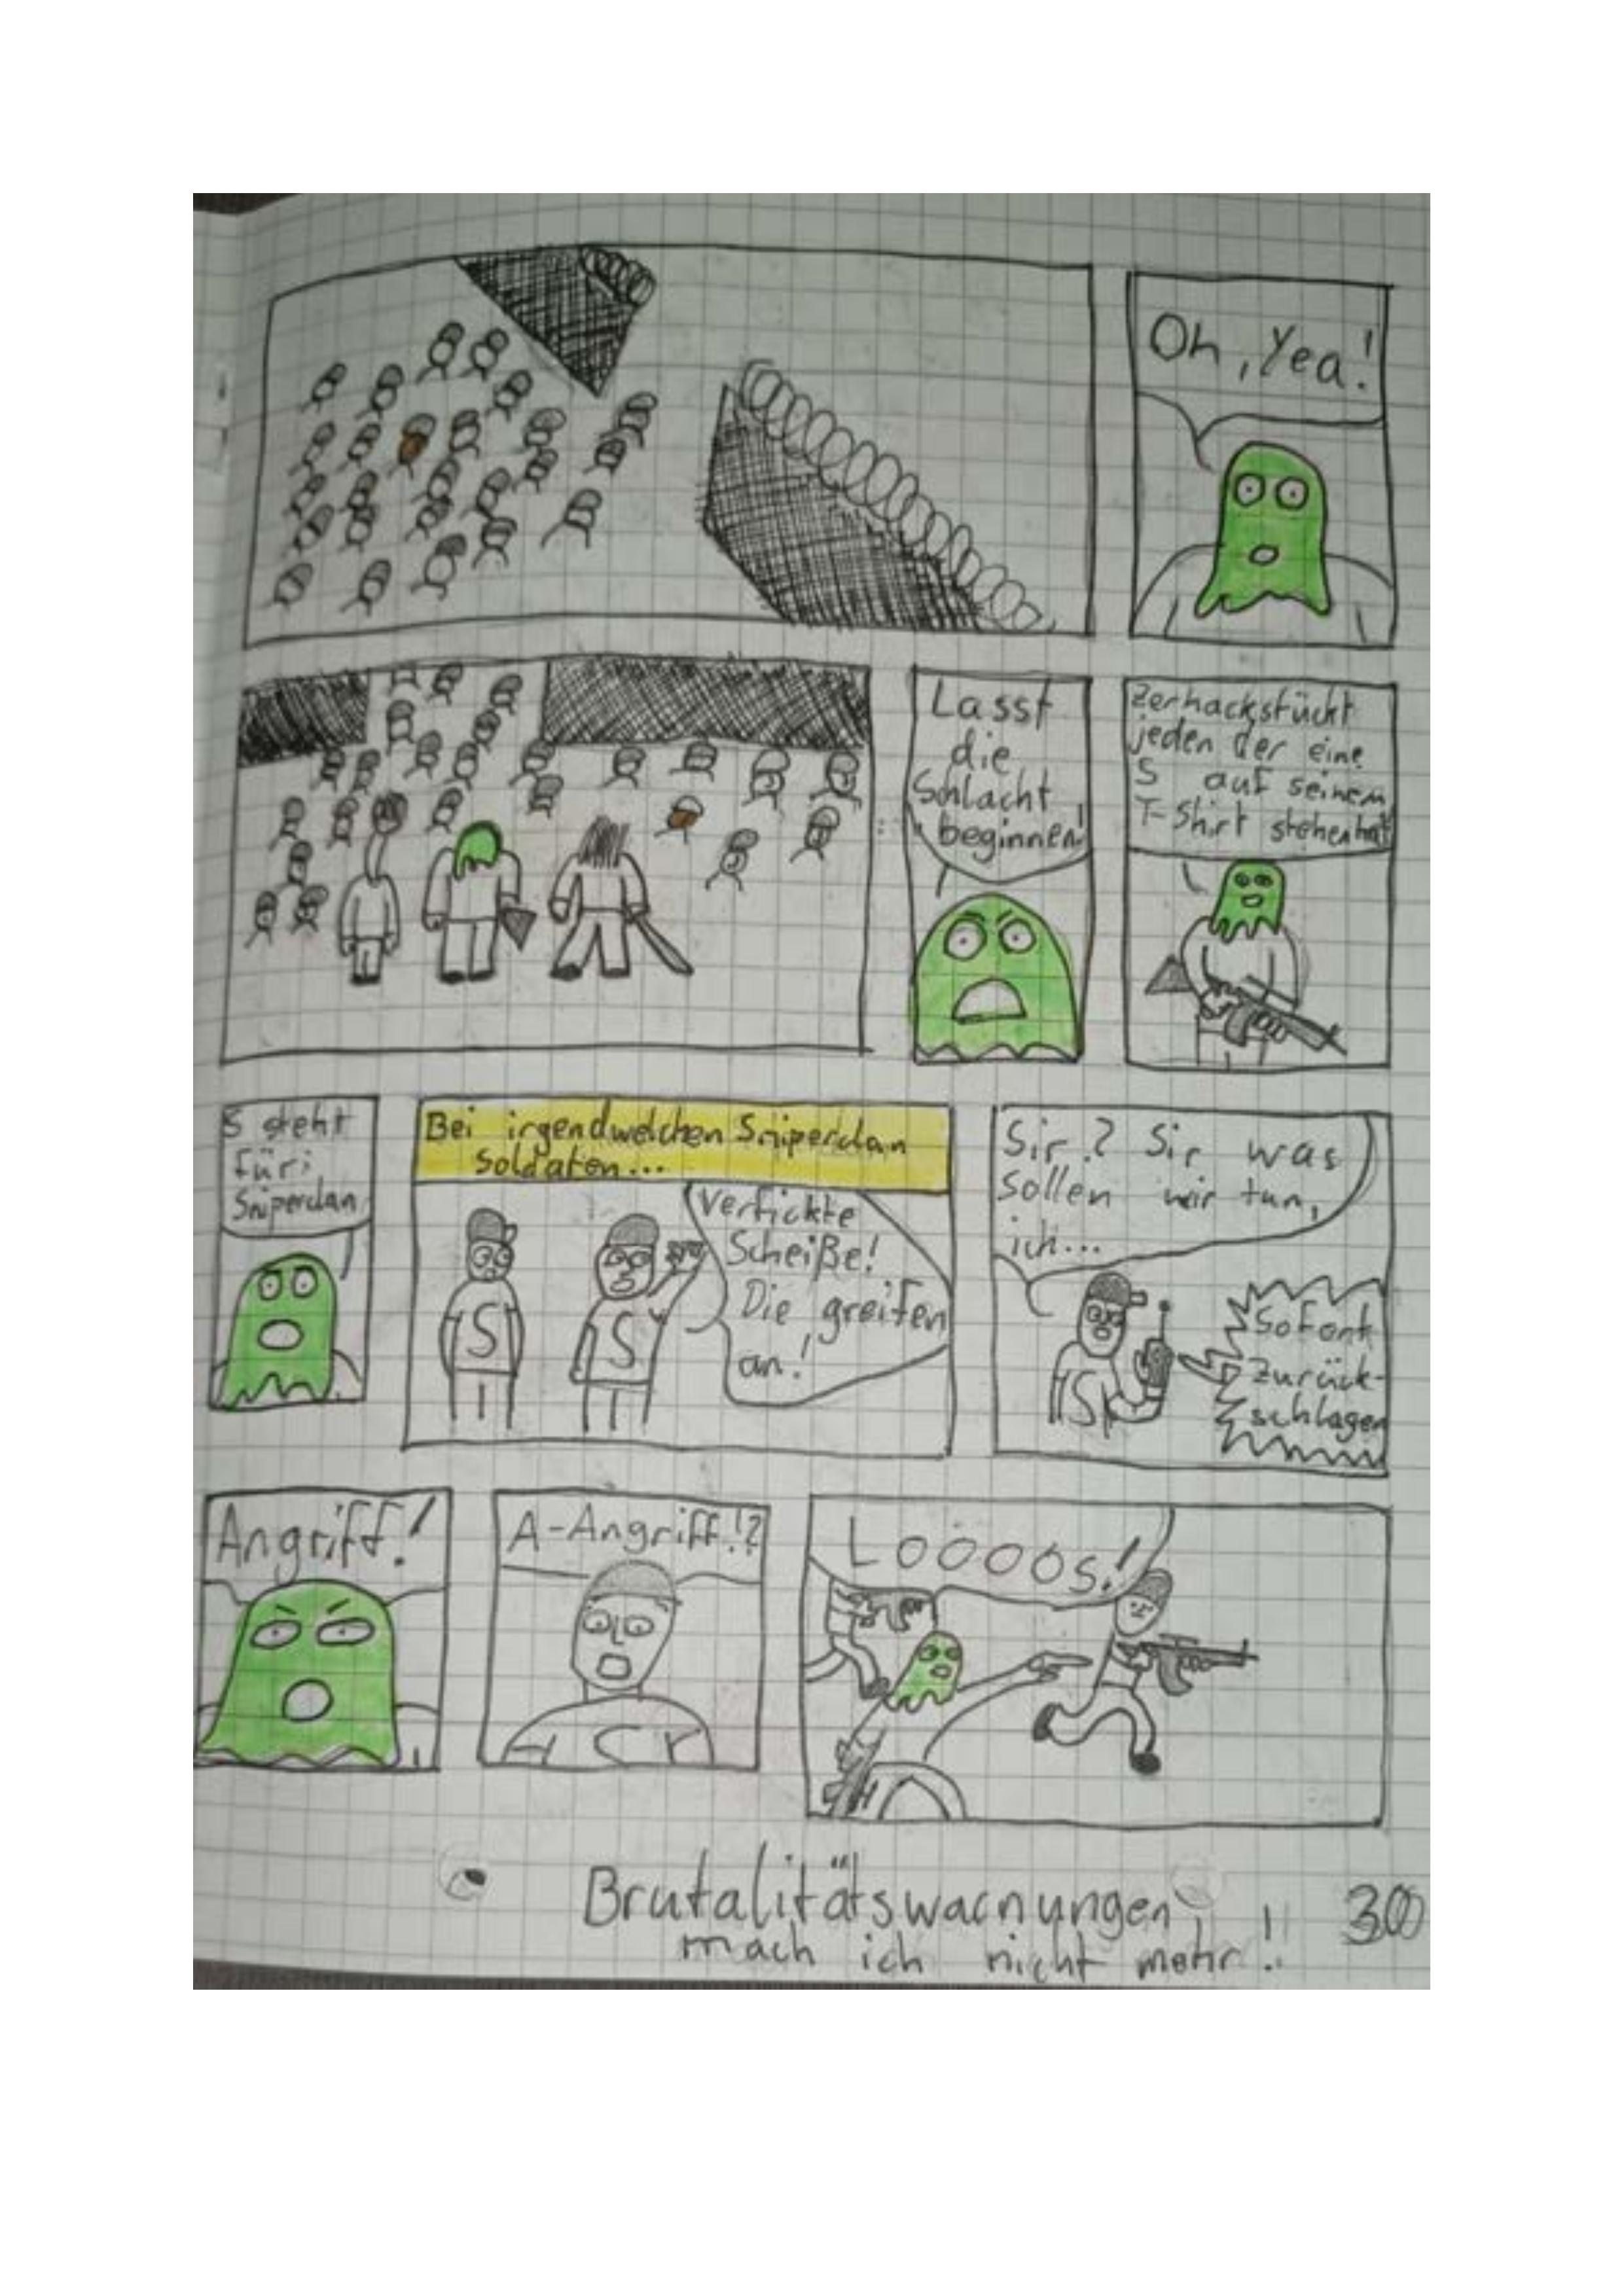 Oh, Yea!
Lasst
die
Schlacht
beginnen!
Zerhackstückt
jeden der eine
S auf seinem
T-Shirt stehen hat
S steht
für:
Sniperclan
Bei irgendwelchen Sniperclan
soldaten...
Verfickte
Scheiße!
Die greifen
an!
S
S
Sir? Sir was
sollen wir tun,
ich...
S
Sofort
zurück-
schlagen
Angriff!
A-Angriff!?
Loooos!
Brutalitätswarnungen
mach ich nicht mehr!!